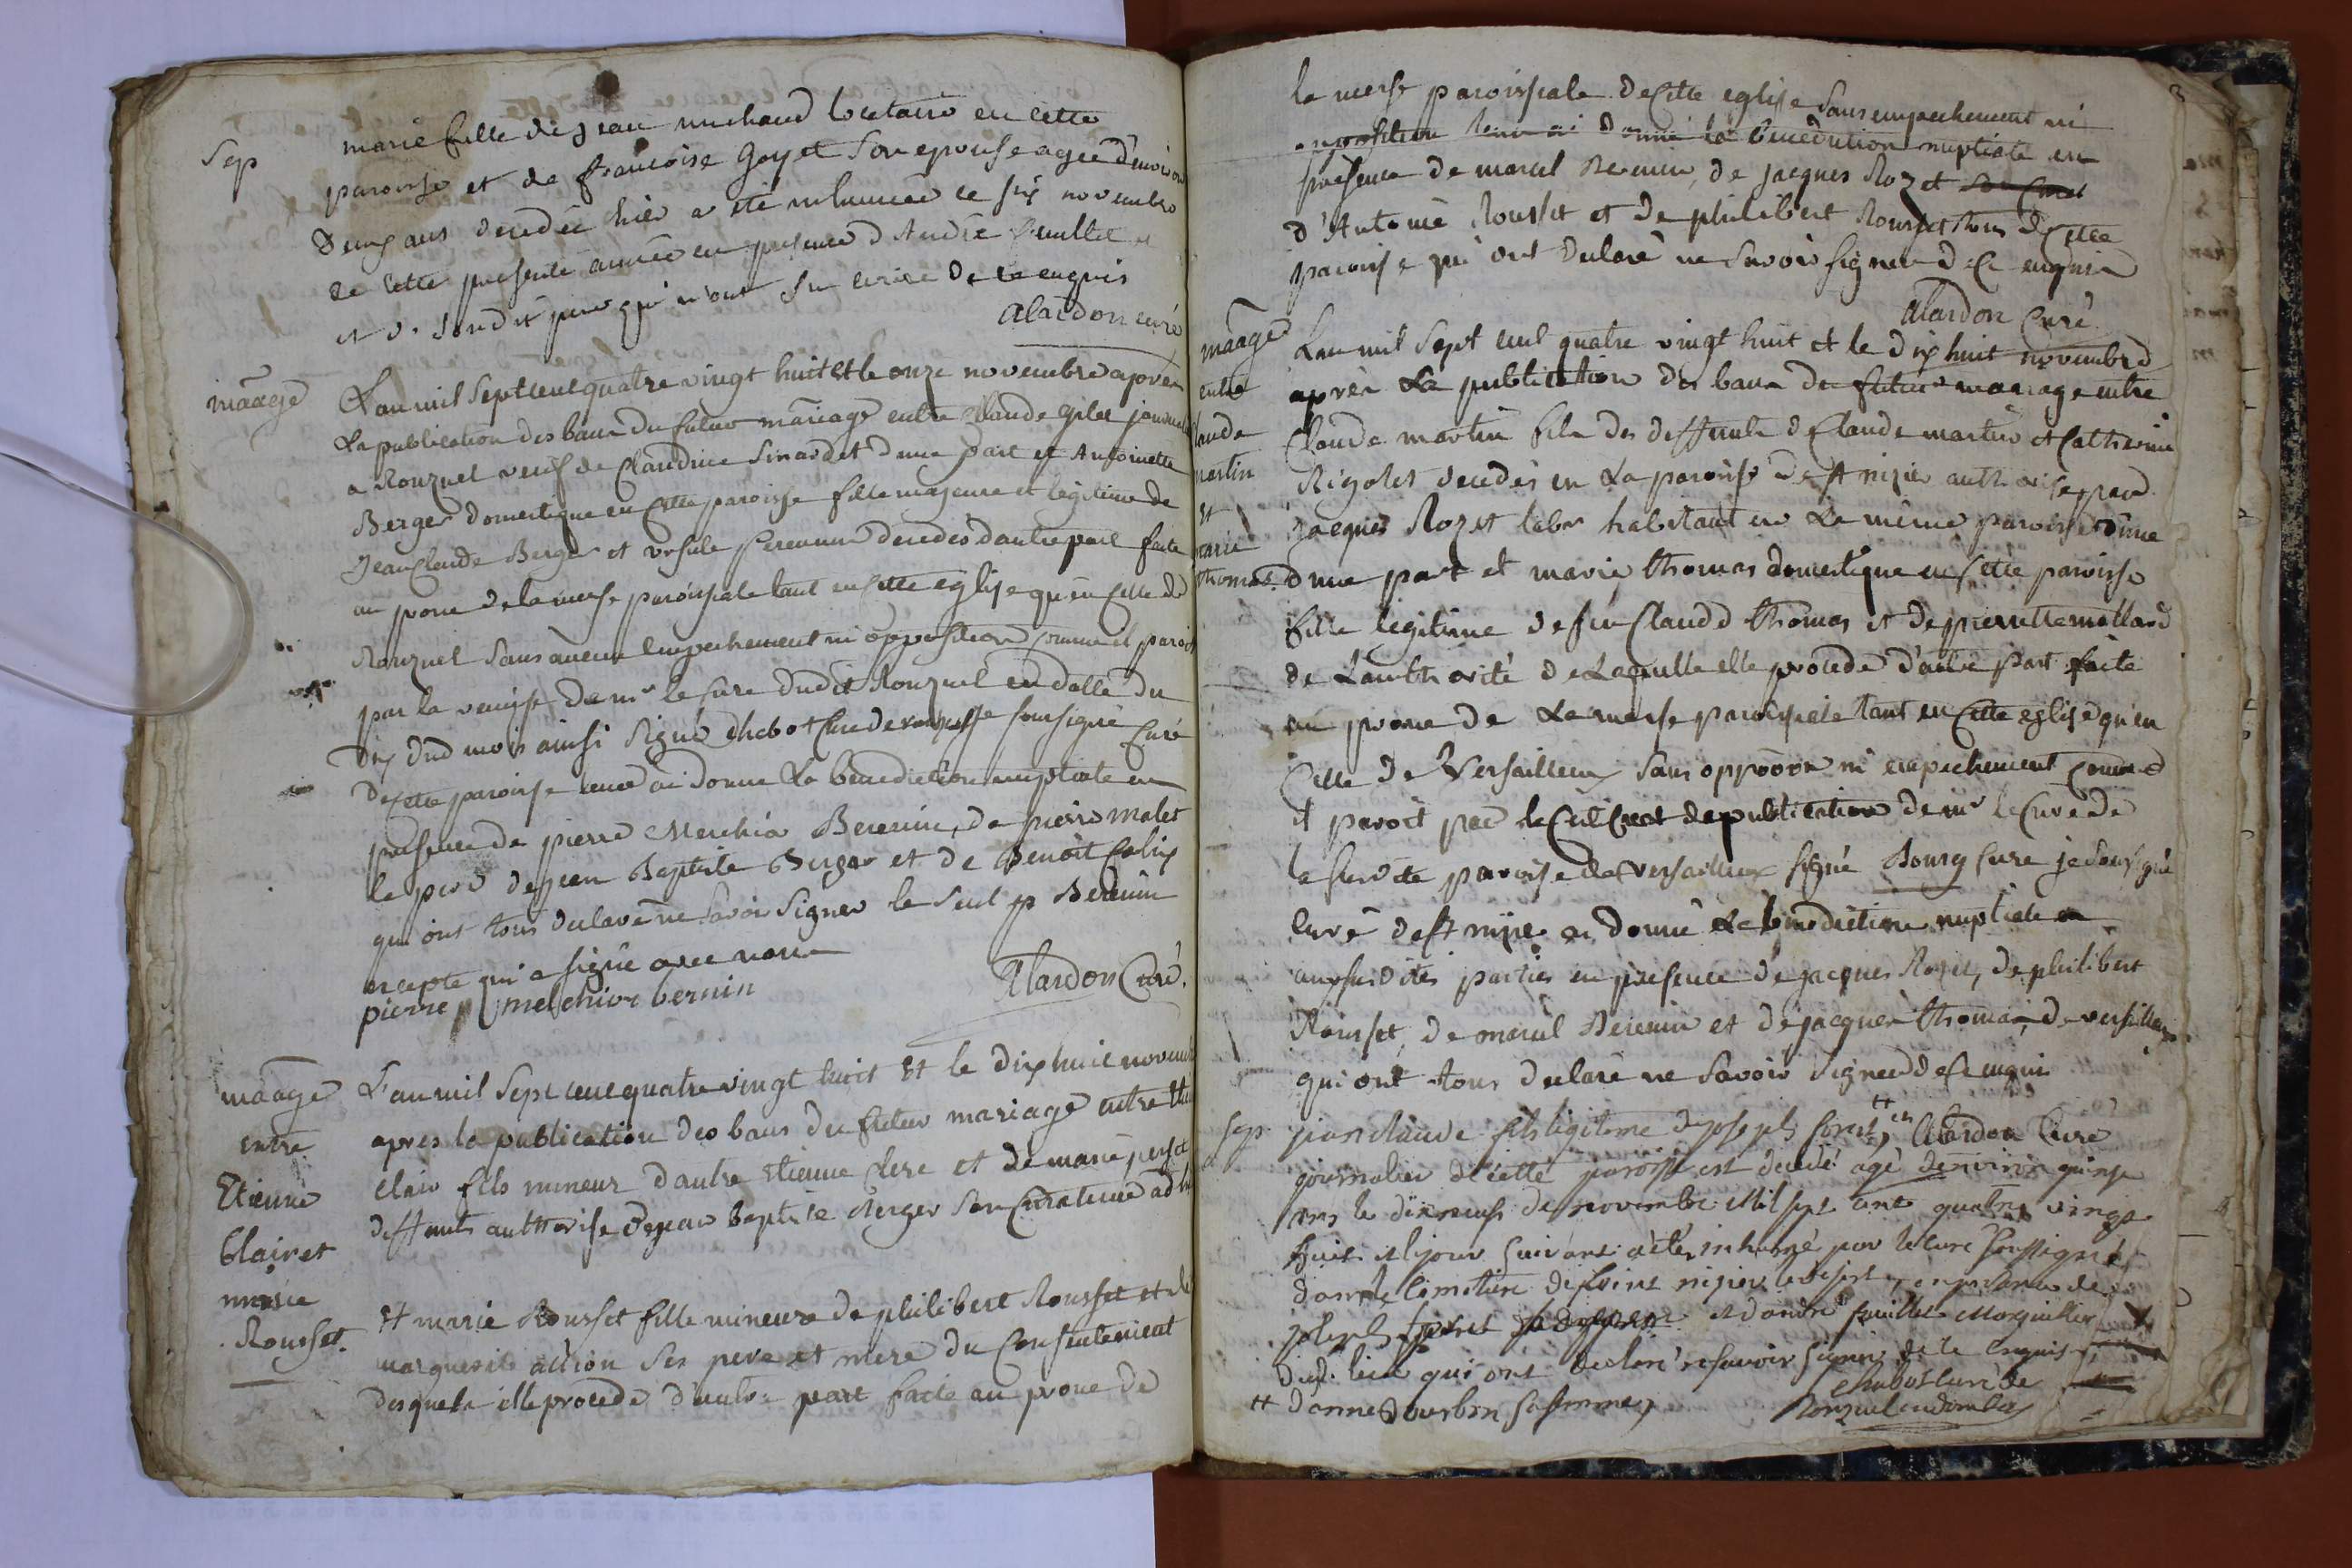 Sep
marie fille de jean michaud locataire en cette
paroisse et de francoise Goyet son epouse agee d'environ
deux ans decedée hier a été inhumée ce six novembre
de cette presente année en presence d'André feuillet et
et d. sondit pere qui n'ont su ecrire de ce enquis
Alardon curé
maage
L'an mil sept cent quatre vingt huit et le onze novembre apres
la publication des bans du futur mariage entre Claude Gilet
a Ronzuel veuf de Claudine Sinardet d'une part et Antoinette
Berger domestique en cette paroisse fille majeure et legitime de
Jean Claude Berger et ursule decedés d'autre part faite
au prone de la messe paroissiale tant en cette eglise qu'en celle de
Ronzuel sans aucun empechement ni opposition comme il paroit
par la remise de mr le Curé dudit Ronzuel en datte du
dix dud mois ainsi signé Chabot Curé de je soussigné Curé
de cette paroisse leur ai donné la benediction nuptiale en
presence de pierre Merchior Bernin, de pierre malet
le pere de jean Baptiste Berger et de Benoit
qui ont tous declaré ne savoir signer le seul p Bernin
excepté qui a signé avec nous
pierre melchior bernin
Alardon Curé.
maage
entre
Etienne
Clair et
marie
Rousset.
L'an mil sept cent quatre vingt huit et le dix huit novembre
apres la publication des bans du futur mariage entre
Clair fils mineur d'autre Etienne Clere et de marie
deffunts authorise de jean baptiste Berger son Curateur
et marie Rousset fille mineure de philibert Rousset et de
marguerite ses pere et mere du consentement
desquels elle procede d'autre part faite au prone de
la messe paroissiale de cette eglise sans empechement ni
opposition leur ai donné la benediction nuptiale en
presence de marcel Bernin, de jacques Rozet
d'Antoine Rousset et de philibert Rousset tous de cette
paroisse qui ont declaré ne savoir signer de ce enquis
Alardon Curé
maage
entre
Claude
martin
et
marie
thomas.
L'an mil sept cent quatre vingt huit et le dix huit novembre
après la publication des bans du futur mariage entre
Claude martin fils des deffunts de Claude martin et Catherine
Rigolet decedés en la paroisse de st nizier authorisé par
jacques Rozet labr habitant en la même paroisse d'une
d'une part et marie thomas domestique en cette paroisse
fille legitime de feu Claude thomas et de pierrette mollard
de l'authorité de laquelle elle procede d'autre part faite
au prone de la messe paroissiale tant en cette eglise qu'en
Celle de Versailleux sans oppoon ni empechement comme
il paroit par le Certificat de publication de mr le Curé de
la susdite paroisse de versailleux signé Bourg Curé je soussigné
Curé de st nizier ai donné la benediction nuptiale
aux susdites parties en presence de jacques Rozet, de philibert
Rousset, de marcel Bernin et de jacques thomas de versailleux
qui ont tous declaré ne savoir signer de ce enquis
Alardon Curé
sep.
jean claude fils légitime de joseph foret, ++
journalier de cette paroisse est decedé agé d'environ quinze
ans le dixneuf de novembre mil sept cent quatre vingt
huit et le jour suivant a été inhumé par le curé soussigné
dans le cimetiere de saint nizier le desert, en presence de
joseph foret et d'andré feuillet Marguillier
dud. lieu qui ont declaré ne savoir signer de ce enquis
chabot curé de
Ronzuel en dombes
++ d'anne Bourbon sa femme,